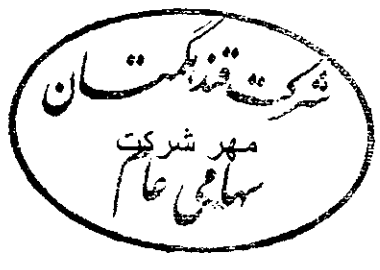 شرکت قند هگمتان
مهر شرکت
سهامی عام